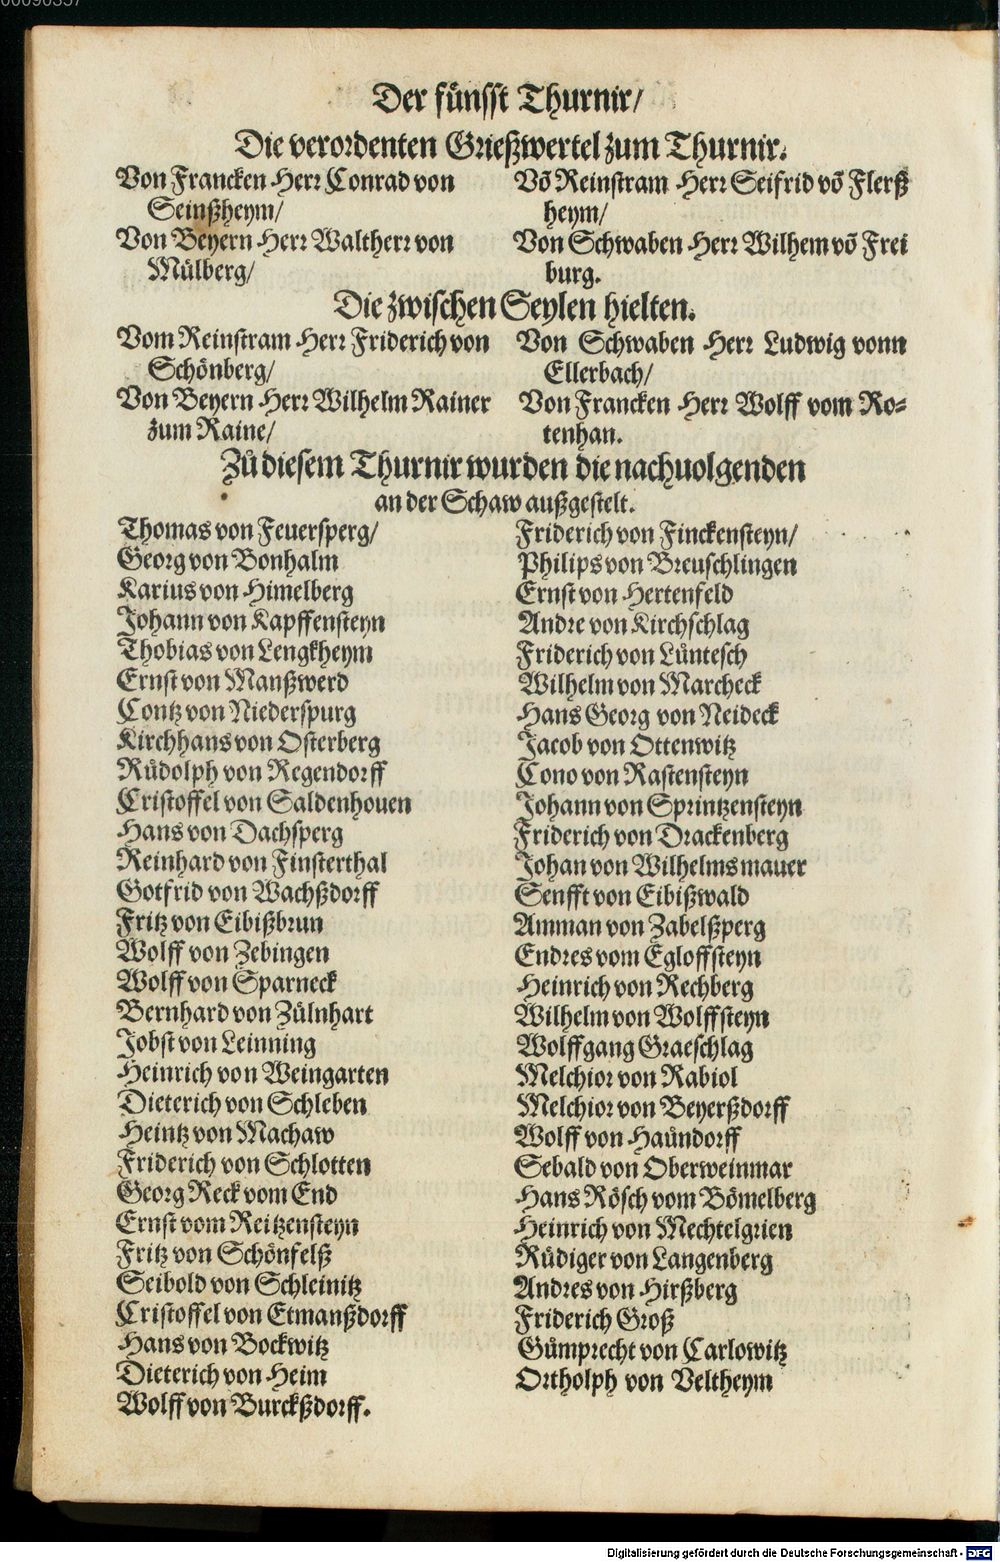 Der fünfft Thurnir/
Die verordenten Grießwertel zum Thurnir.
Von Francken Herr Conrad von
Seinßheym/
Von Beyern Herr Waltherr von
Mülberg/
Vō Reinstram Herr Seifrid vō Flerß
heym/
Von Schwaben Herr Wilhem vō Frei
burg.
Die zwischen Seylen hielten.
Vom Reinstram Herr Friderich von
Schönberg/
Von Beyern Herr Wilhelm Rainer
zum Raine/
Von Schwaben Herr Ludwig vonn
Ellerbach/
Von Francken Herr Wolff vom Ro-
tenhan.
Zů diesem Thurnir wurden die nachuolgenden
an der Schaw außgestelt.
Thomas von Feuersperg/
Georg von Bonhalm
Karius von Himelberg
Johann von Kapffensteyn
Thobias von Lengkheym
Ernst von Manßwerd
Contz von Niederspurg
Kirchhans von Osterberg
Růdolph von Regendorff
Cristoffel von Saldenhouen
Hans von Dachsperg
Reinhard von Finsterthal
Gotfrid von Wachßdorff
Fritz von Eibißbrun
Wolff von Zebingen
Wolff von Sparneck
Bernhard von Zülnhart
Jobst von Leinning
Heinrich von Weingarten
Dieterich von Schleben
Heintz von Machaw
Friderich von Schlotten
Georg Reck vom End
Ernst vom Reitzensteyn
Fritz von Schönfelß
Seibold von Schleinitz
Cristoffel von Etmanßdorff
Hans von Bockwitz
Dieterich von Heim
Wolff von Burckßdorff.
Friderich von Finckensteyn/
Philips von Breuschlingen
Ernst von Hertenfeld
Andre von Kirchschlag
Friderich von Lüntesch
Wilhelm von Marcheck
Hans Georg von Neideck
Jacob von Ottenwitz
Cono von Rastensteyn
Johann von Sprintzensteyn
Friderich von Drackenberg
Johan von Wilhelmsmauer
Senfft von Eibißwald
Amman von Zabelßperg
Endres vom Egloffsteyn
Heinrich von Rechberg
Wilhelm von Wolffsteyn
Wolffgang Graeschlag
Melchior von Rabiol
Melchior von Beyerßdorff
Wolff von Haündorff
Sebald von Oberweinmar
Hans Rösch vom Bömelberg
Heinrich von Mechtelgrien
Rüdiger von Langenberg
Andres von Hirßberg
Friderich Groß
Gümprecht von Carlowitz
Ortholph von Veltheym
Digitalisierung gefördert durch die Deutsche Forschungsgemeinschaft - DFG